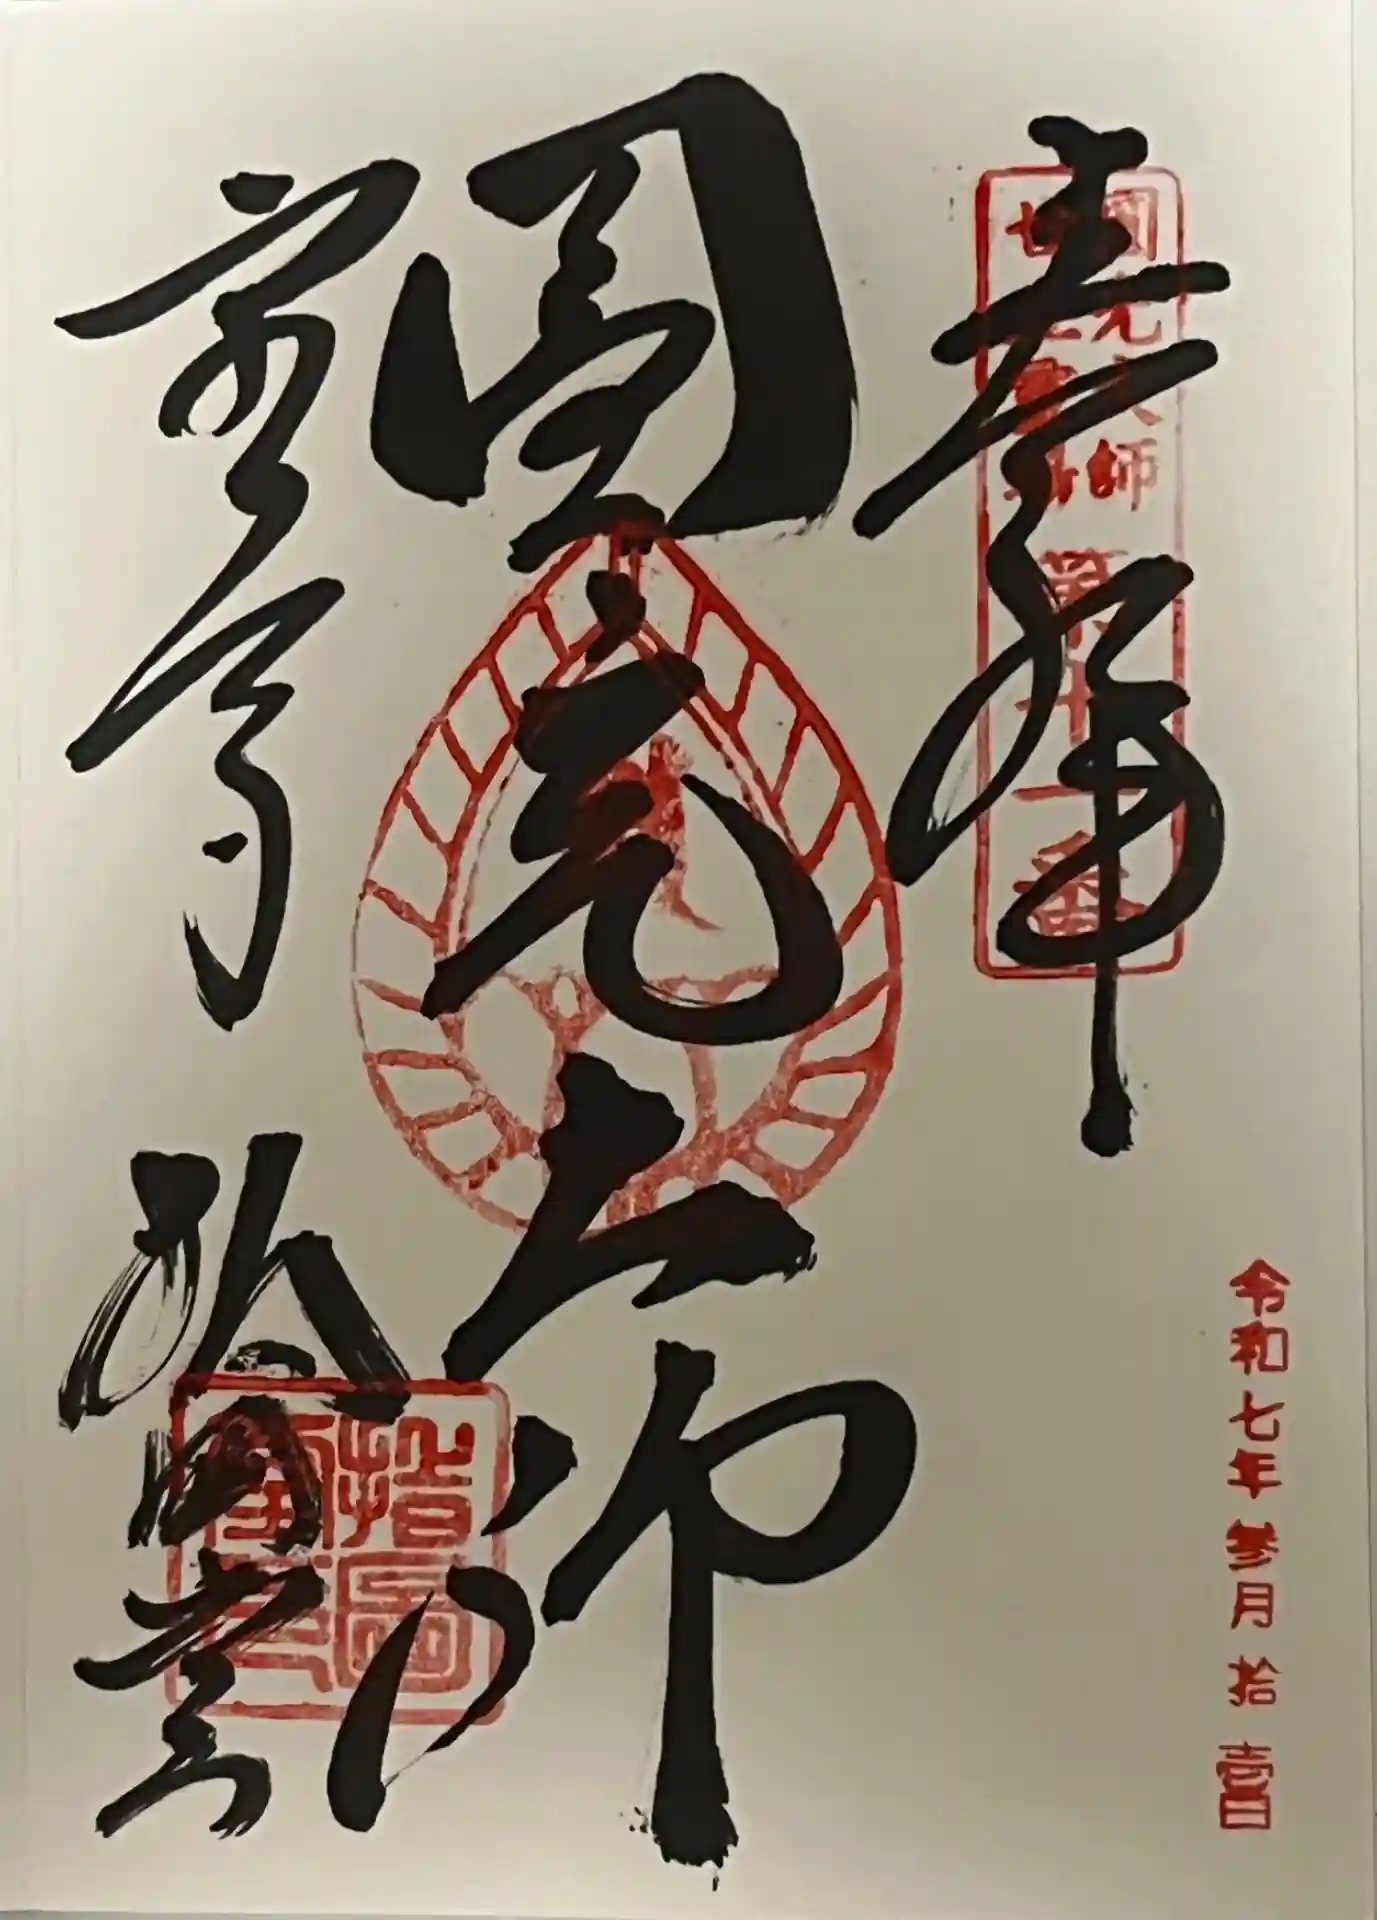 奉拝
圓光大師
指圖堂
圓光大師
廿五霊場
第十一番
令和七年参月拾壹日
指圖